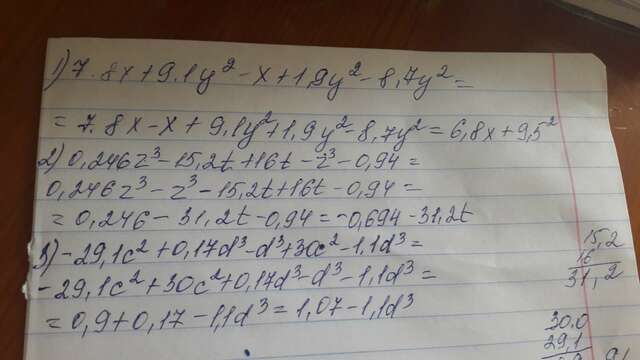 1) 7.8x+9.1y²-x+1,9y²-8,7y²=
=7.8x-x+9,1y²+1,9y²-8,7y²=6,8x+9,5²
2) 0,246z³-15,2t+16t-z³-0,94=
0,246z³-z³-15,2t+16t-0,94=
=0,246-31,2t-0,94=-0,694-31,2t
3) -29,1c²+0,17d³-d³+30c²-1,1d³=
-29,1c²+30c²+0,17d³-d³-1,1d³=
=0,9+0,17-1,1d³=1,07-1,1d³
15,2
16
31,2
30.0
29,1